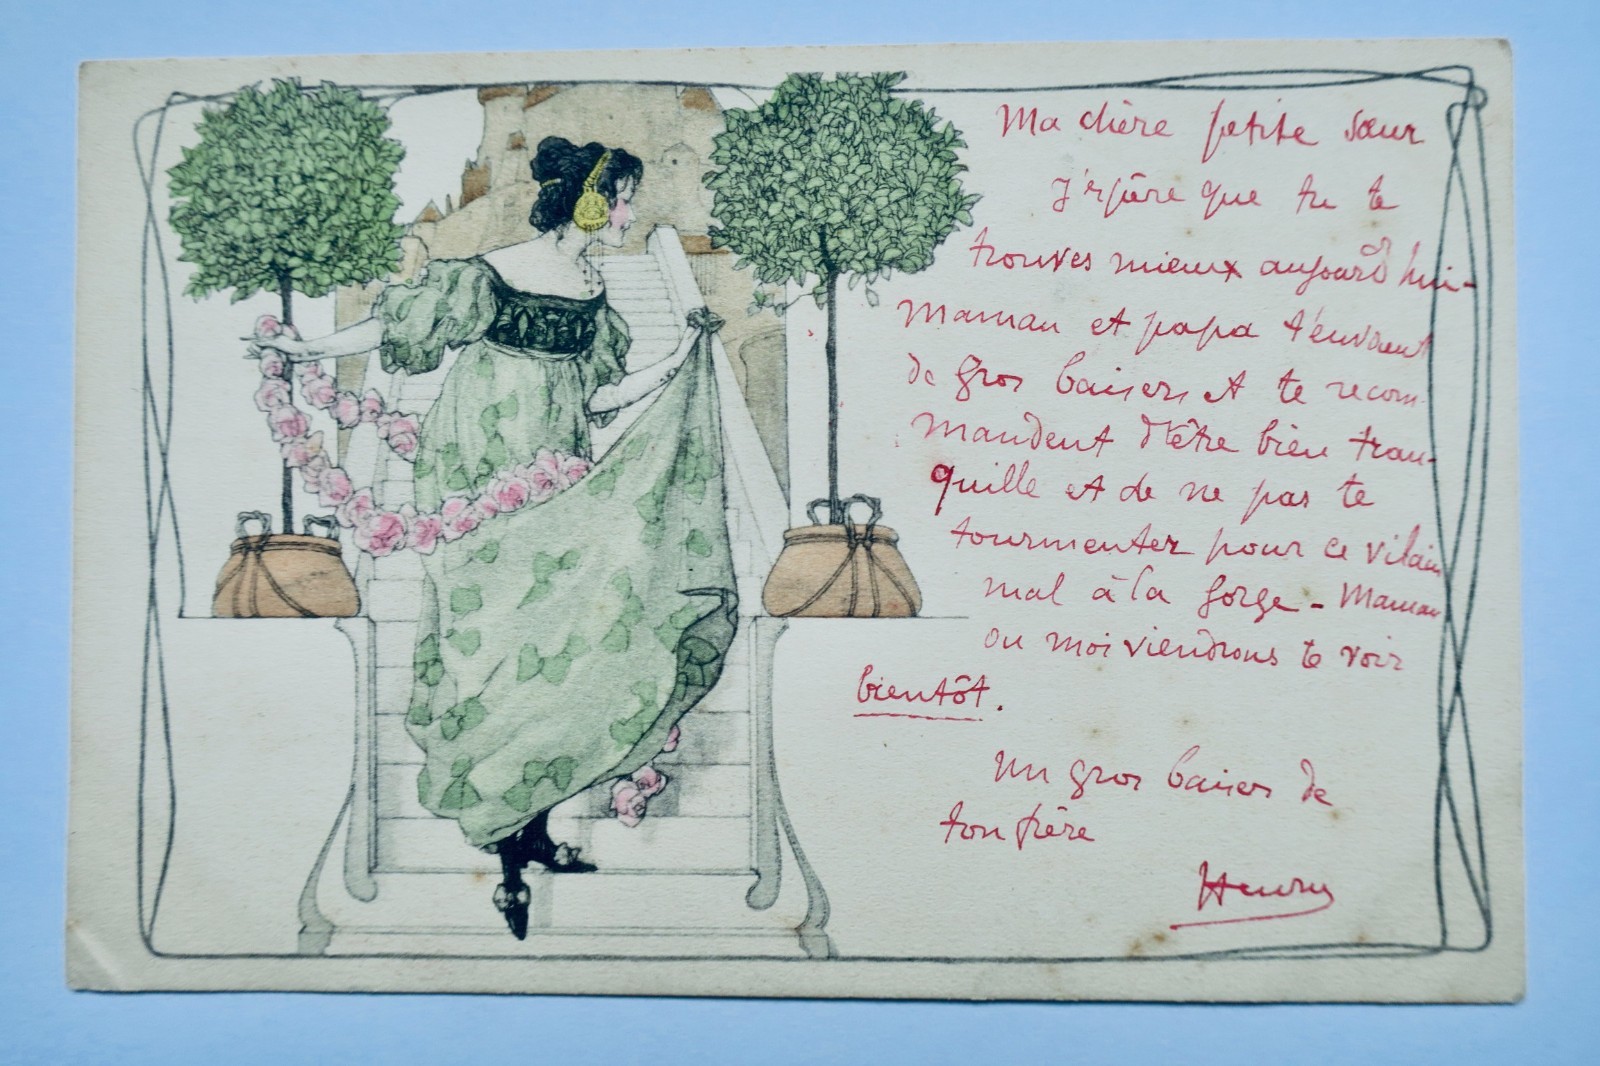 Ma chère petite sœur
J'espère que tu te
trouves mieux aujourd'hui -
Maman et papa t'envoient
de gros baisers et te recom-
mandent d'être bien tran-
quille et de ne pas te
tourmenter pour ce vilain
mal à la gorge - Maman
ou moi viendrons te voir
bientôt.
Un gros baiser de
ton frère
Henry